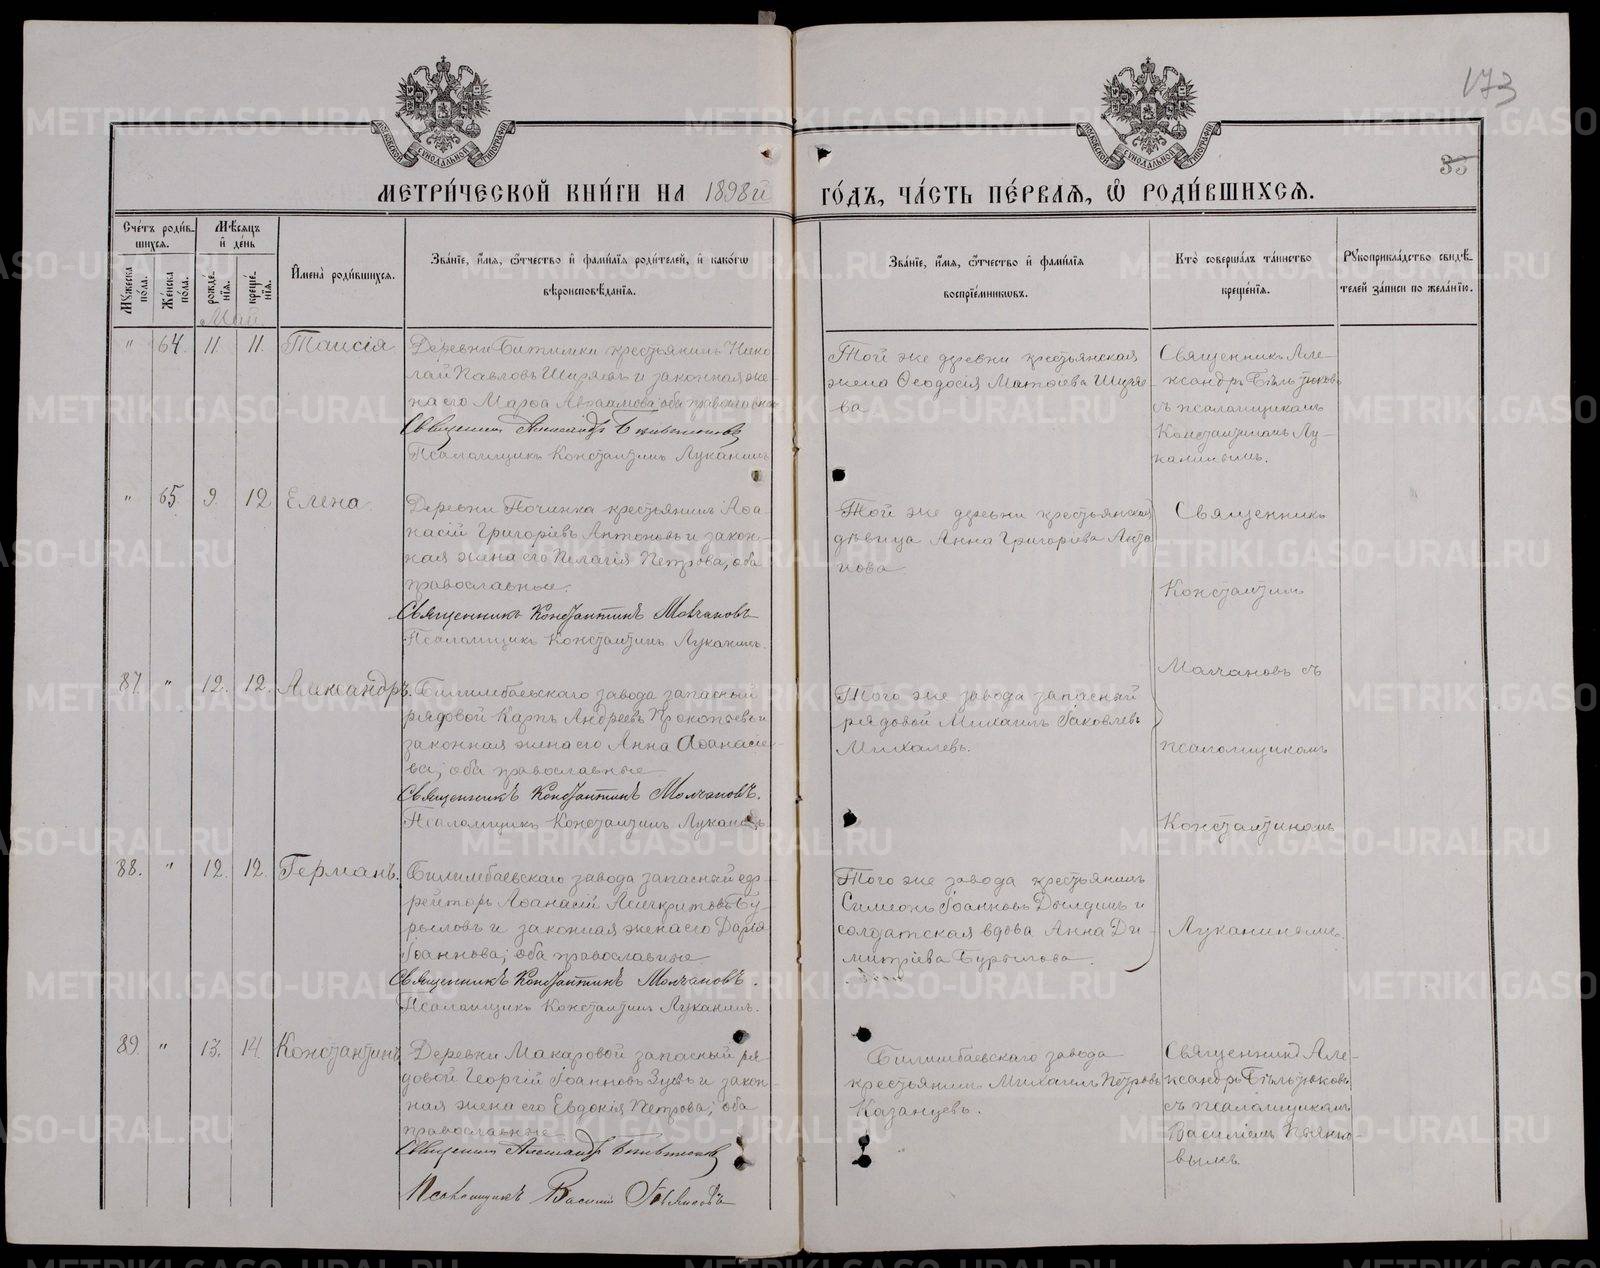 173
35
МОСКОВСКОЙ СУНОДАЛЬНОЙ ТИПОГРАФІИ
МОСКОВСКОЙ СУНОДАЛЬНОЙ ТИПОГРАФІИ
МЕТРИ́ЧЕСКОЙ КНИ́ГИ НА 1898й ГО́ДЪ, ЧА́СТЬ ПЕ́РВАѦ, Ѽ РОДИ́ВШИХСѦ.
Сче́тъ роди́в-
шихся.
Мѣ́сяцъ
и҆ де́нь
Мꙋжеска по́ла.
Же́нска по́ла.
рожде́нїѧ.
креще́нїѧ.
И҆мена̀ роди́вшихся.
Зва́нїе, и҆́мѧ, ѻ҆́тчество и҆ фами́лїѧ роди́телей, и҆ како́гѡ
вѣроисповѣ́данїѧ.
Зва́нїе, и҆́мѧ, ѻ҆́тчество и҆ фами́лїѧ
воспрїе́мникѡвъ.
Кто̀ соверша́лъ та́инство
креще́нїѧ.
Рꙋкоприкла́дство свидѣ́-
телей за́писи по жела́нїю.
Май
" 64. 11. 11. Таисія
Деревни Битимки крестьянинъ Нико
лай Павловъ Ширяевъ и законная же-
на его Марѳа Авраамова; оба православные
Священникъ Александръ Бѣльтюковъ
Псаломщикъ Константинъ Луканинъ
Той же деревни крестьянская
жена Ѳеодосія Матѳіева Ширяе-
ва
Священникъ Але-
ксандръ Бѣльтюковъ
съ псаломщикомъ
Константиномъ Лу-
канинымъ.
" 65. 9. 12 Елена
Деревни Починка крестьянинъ Аѳа-
насій Григоріевъ Антоновъ и закон-
ная жена его Пелагія Петрова; оба
православные.
Священникъ Константинъ Молчановъ
Псаломщикъ Константинъ Луканинъ.
Той же деревни крестьянская
дѣвица Анна Григоріева Анто
нова
Священникъ
Константинъ
Молчановъ съ
псаломщикомъ
Константиномъ
Луканинымъ.
87. " 12. 12. Александръ.
Билимбаевскаго завода запасный
рядовой Карпъ Андреевъ Прокопьевъ и
законная жена его Анна Аѳанасіе-
ва; оба православные
Священникъ Константинъ Молчановъ.
Псаломщикъ Константинъ Луканинъ.
Того же завода запасный
рядовой Михаилъ Іаковлевъ
Михалевъ.
88. " 12. 12. Германъ.
Билимбаевскаго завода запасный еф-
рейторъ Аѳанасій Асигкритовъ Бу-
рыловъ и законная жена его Дарія
Іоаннова; оба православные
Священникъ Константинъ Молчановъ.
Псаломщикъ Константинъ Луканинъ.
Того же завода крестьянинъ
Симеонъ Іоанновъ Дылдинъ и
солдатская вдова Анна Ди-
митріева Бурылова.
89. " 13. 14. Константинъ
Деревни Макаровой запасный ря-
довой Георгій Іоанновъ Зуевъ и закон-
ная жена его Евдокія Петрова; оба
православные.
Священникъ Александръ Бѣльтюковъ
Псаломщикъ Василій Пьянковъ
Билимбаевскаго завода
крестьянинъ Михаилъ Петровъ
Казанцевъ.
Священникъ Але-
ксандръ Бѣльтюковъ
съ псаломщикомъ
Василіемъ Пьянко-
вымъ
METRIKI.GASO-URAL.RU